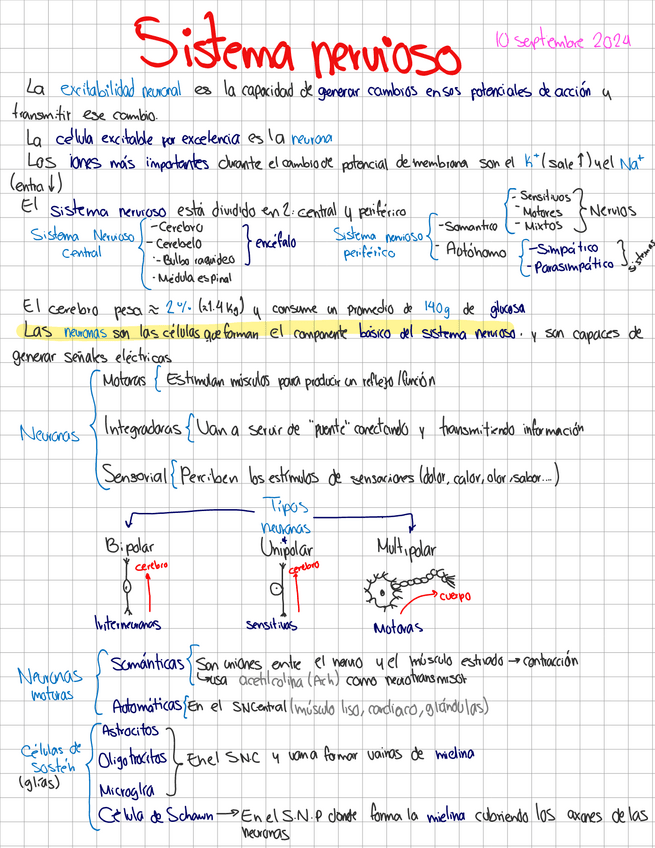 Sistema nervioso
10 septembre 2024
La excitabilidad neuronal es la capacidad de generar cambios en sos potenciales de acción y
transmitir ese cambio.
La célula excitable por excelencia es la neurona
Los iones más importantes durante el cambio de potencial de membrana son el K+ (sale ↑) y el Na+
(entra ↓)
El sistema nervioso está dividido en 2: central y periférico
Sistema Nervoso central
- Cerebro
- Cerebelo
- Bulbo raquídeo
- Médula espinal
encéfalo
Sistema nervioso periférico
- Somantico
- Autónomo
- Sensitivos
- Motores
- Mixtos
Nervios
- Simpático
- Parasimpático
sistemas
El cerebro pesa ≈ 2% (≈1.4 kg) y consume un promedio de 140g de glucosa
Las neuronas son las células que forman el componente básico del sistema nervioso. y son capaces de
generar señales eléctricas
Neuronas
Motoras { Estimulan músculos para producir un reflejo/función
Integradoras { Van a servir de "puente" conectando y transmitiendo información
Sensorial { Perciben los estímulos de sensaciones (dolor, calor, olor, sabor...)
Tipos
neuronas
Bipolar
Unipolar
Multipolar
cerebro
cerebro
cuerpo
Interneuronas
sensitivas
Motoras
Neuronas
motoras
Sománticas { Son uniones entre el nervio y el músculo estriado → contracción
↳ usa acetilcolina (Ach) como neurotransmisor
Automáticas { En el SNCentral (músculo liso, cardiaco, glándulas)
Células de
sostén
(glías)
Astrocitos
Oligotrocitos
Microglía
En el SNC y van a formar vainas de mielina
Célula de Schawn → En el S.N.P donde forma la mielina cubriendo los axones de las
neuronas